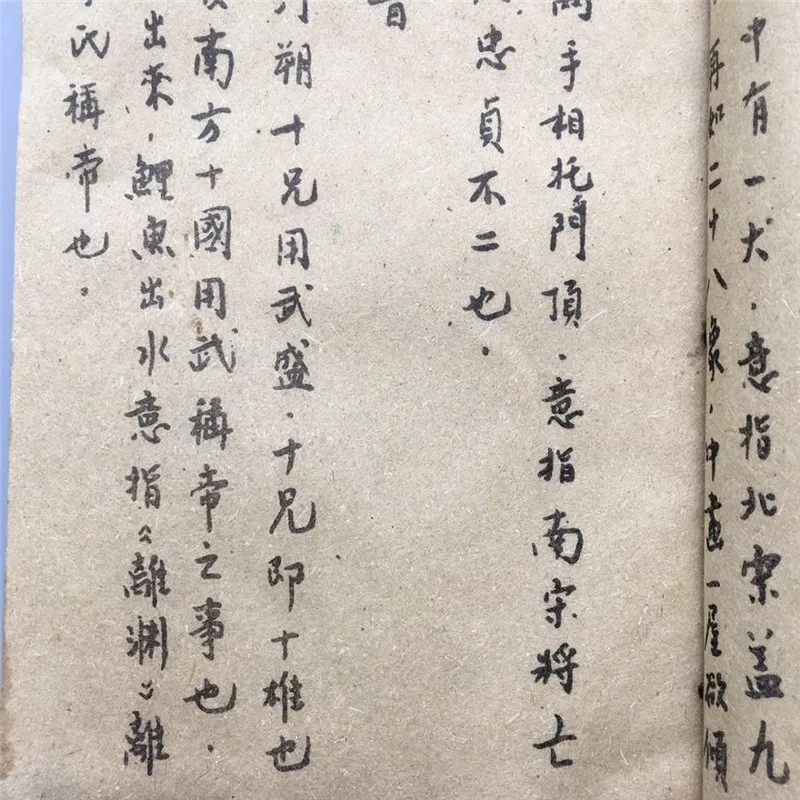 中有一犬．意指北宋盖九
再如二十八像．中画一屋欲傾
兩手相托門頂．意指南宋將亡
忠貞不二也．
音
朔十兄用武盛．十兄即十雄也
南方十國用武稱帝之事也．
出來．鯉魚出水意指《離渊》離
氏稱帝也．